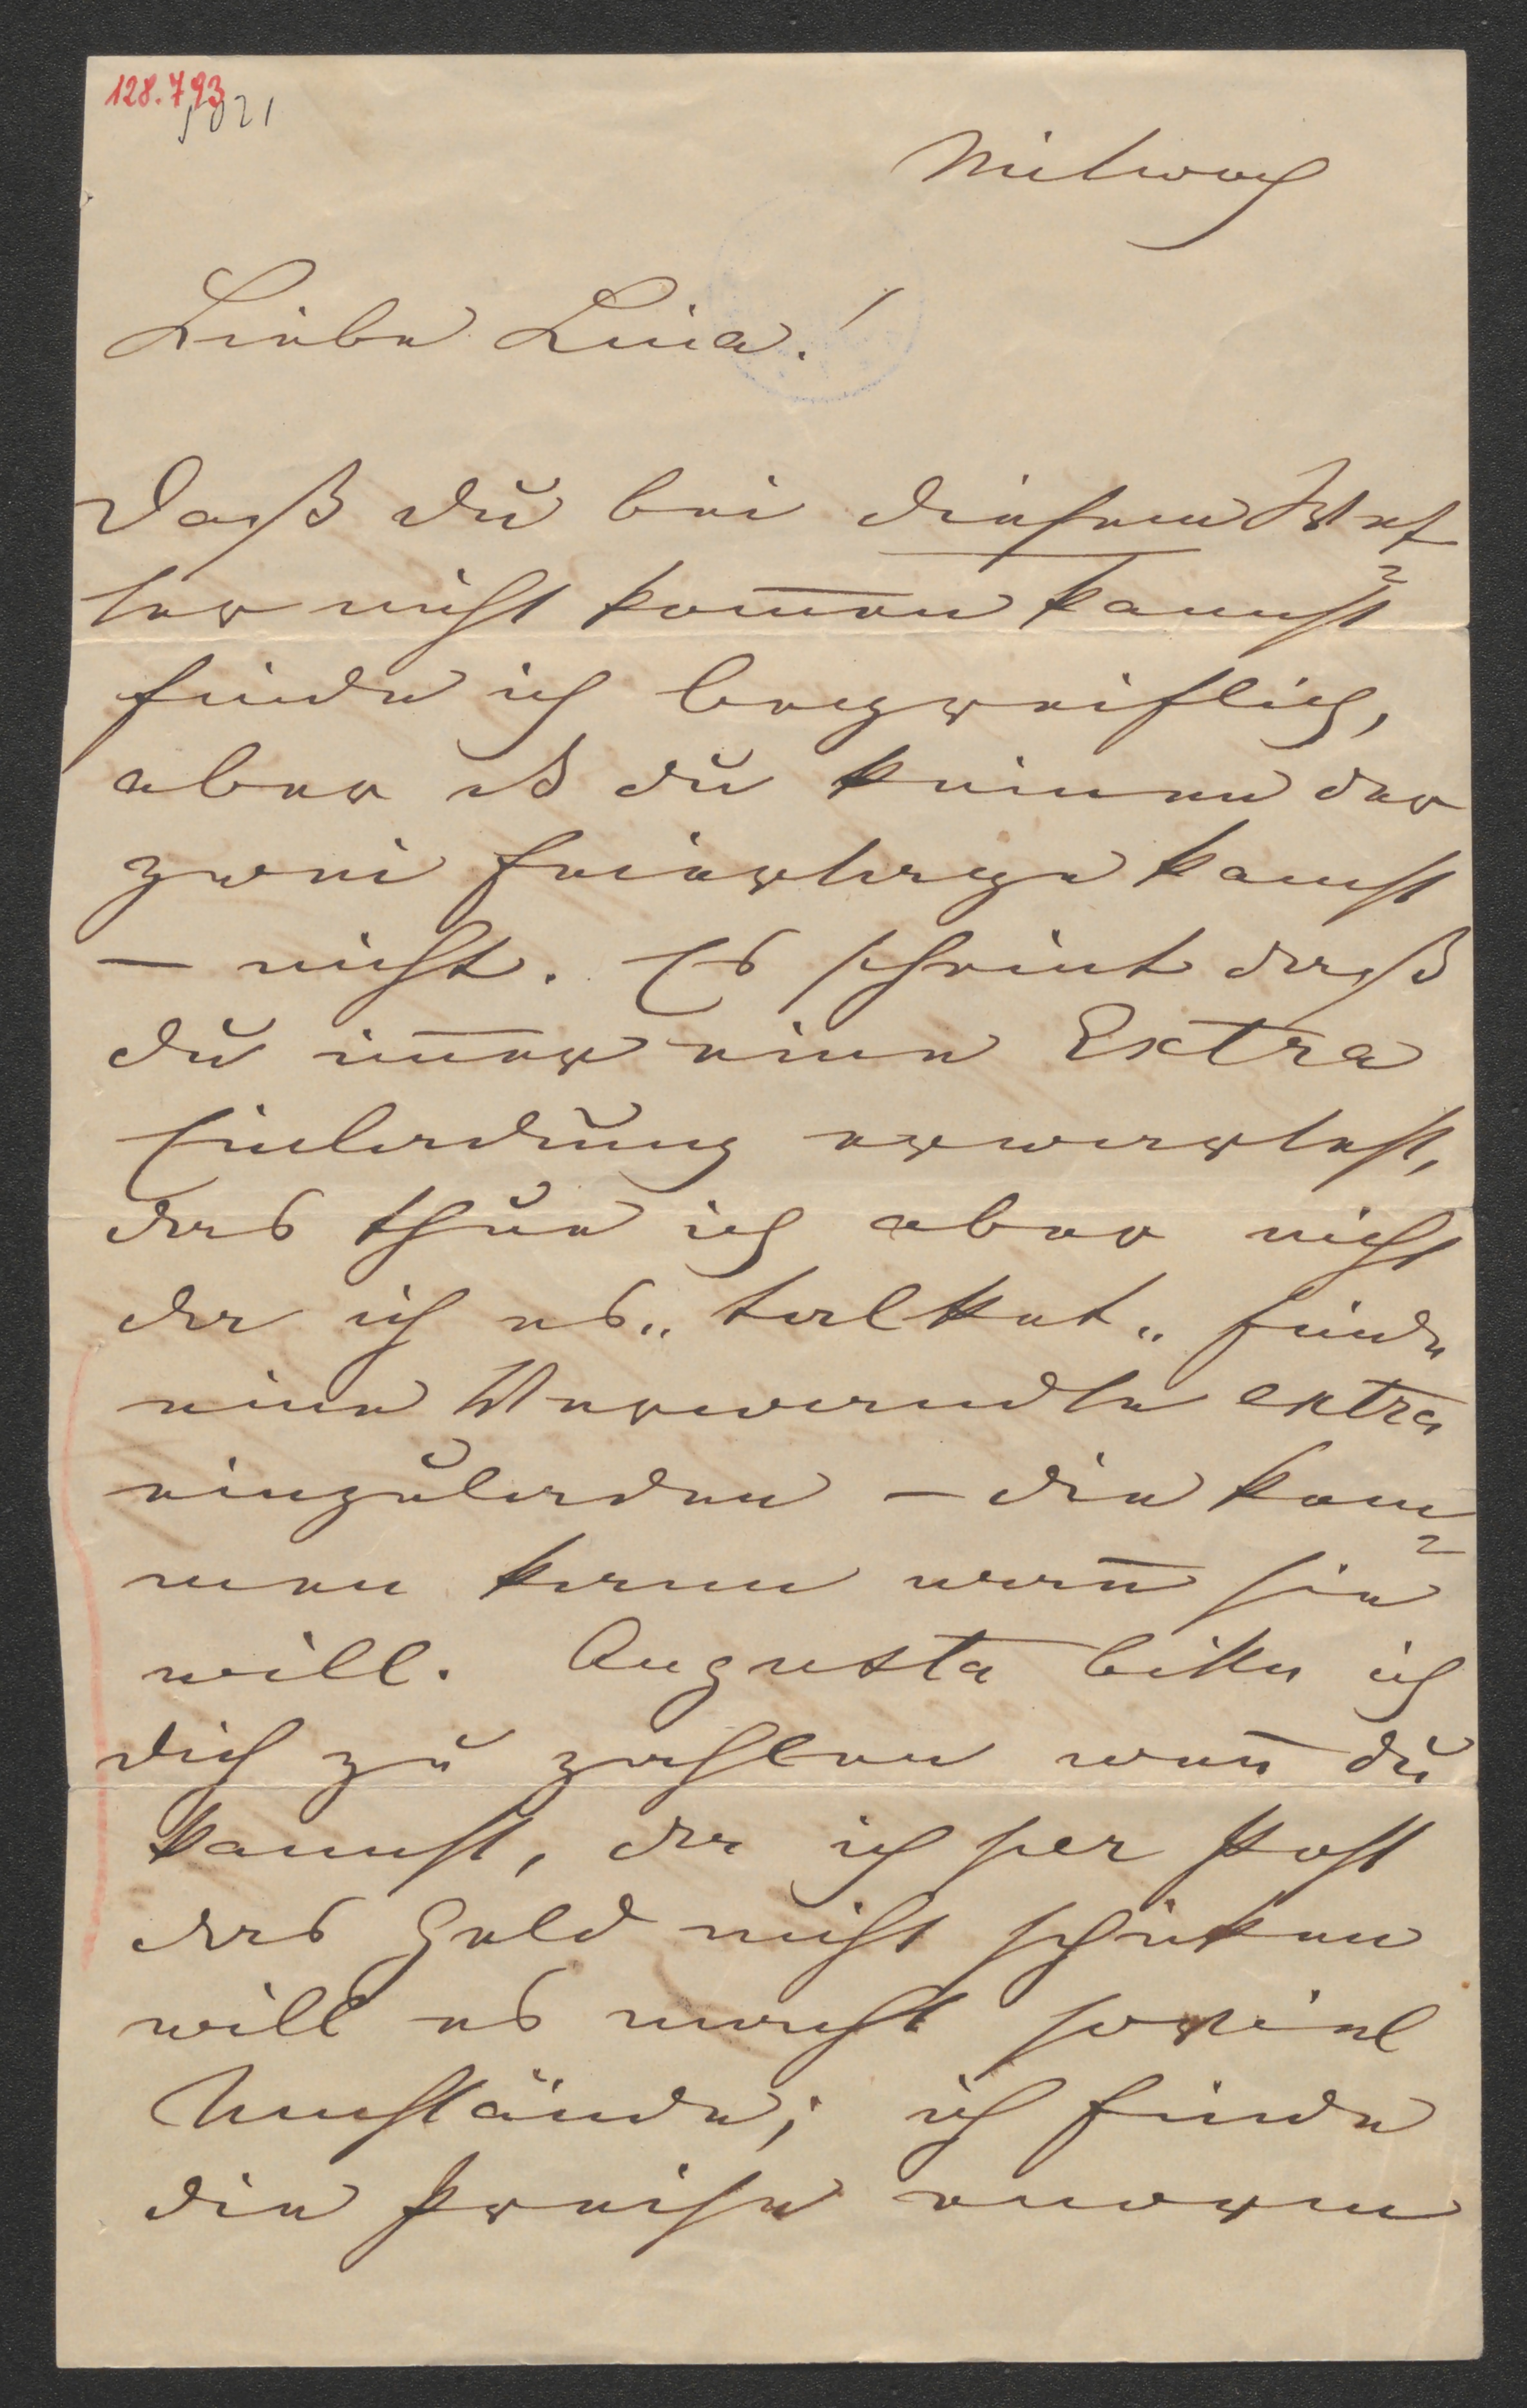 128.793
Mitwoch
Liebe Lina!
Daß du bei diesem Wet=
ter nicht kom̅en kannst
finde ich begreiflich,
aber daß du keinen der
zwei Feiertage kamst
— nicht. Es scheint daß
du im̅er eine Extra
Einladung erwartest,
das thue ich aber nicht
da ich es „talket" finde
eine Verwandte extra
einzuladen – die kom=
men kann wan̅ sie
will. Augusta bitte ich
dich zu zahlen wen̅ du
kannst, da ich per Post
das Geld nicht schicken
will es macht soviel
Umstände; ich finde
die Preise enorm